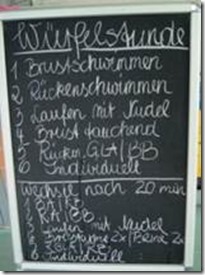 Würfelstunde
1 Brustschwimmen
2 Rückenschwimmen
3 Laufen mit Nudel
4 Brust tauchend
5 Rücken GLA/BB
6 Individuell
Wechsel nach 20 min
1 BA/KB
2 RA/BB
3 Laufen mit Nudel
4
5
6 Individuell